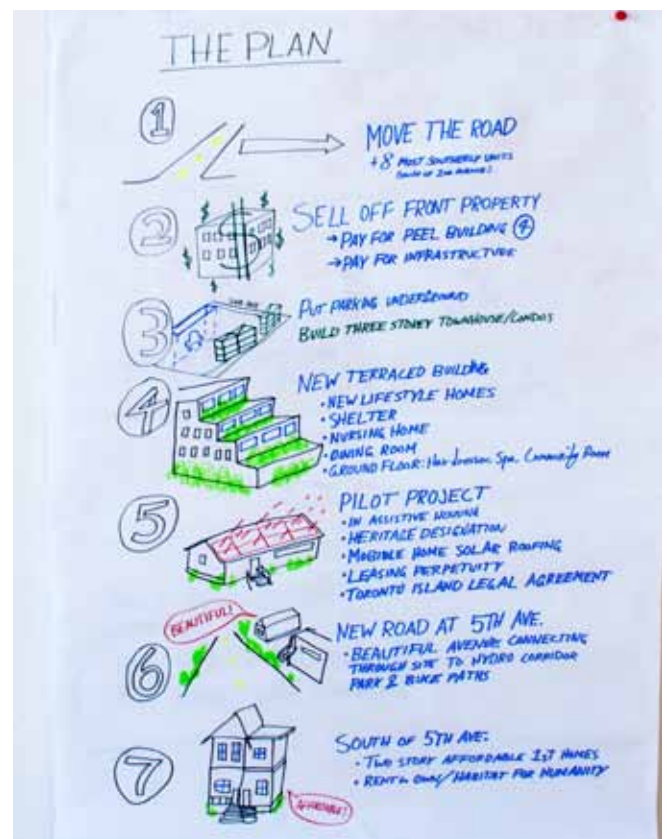 THE PLAN
1
MOVE THE ROAD
+ 8 MOST SOUTHERLY UNITS
(SOUTH OF 2ND AVENUE)
2
$ $ $ $ $ $
SELL OFF FRONT PROPERTY
→ PAY FOR PEEL BUILDING 4
→ PAY FOR INFRASTRUCTURE
3
PUT PARKING UNDERGROUND
BUILD THREE STOREY TOWNHOUSE/CONDOS
4
NEW TERRACED BUILDING
• NEW LIFESTYLE HOMES
• SHELTER
• NURSING HOME
• DINING ROOM
• GROUND FLOOR: Hairdresser, Spa, Community Room
5
PILOT PROJECT
• IN ASSISTIVE HOUSING
• HERITAGE DESIGNATION
• MOBIBLE HOME SOLAR ROOFING
• LEASING PERPETUITY
• TORONTO ISLAND LEGAL AGREEMENT
BEAUTIFUL!
6
NEW ROAD AT 5TH AVE.
• BEAUTIFUL AVENUE CONNECTING
THROUGH SITE TO HYDRO CORRIDOR
PARK & BIKE PATHS
7
SOUTH OF 5TH AVE.
• TWO STORY AFFORDABLE 1ST HOMES
• RENT to OWN/HABITAT FOR HUMANITY
AFFORDABLE!